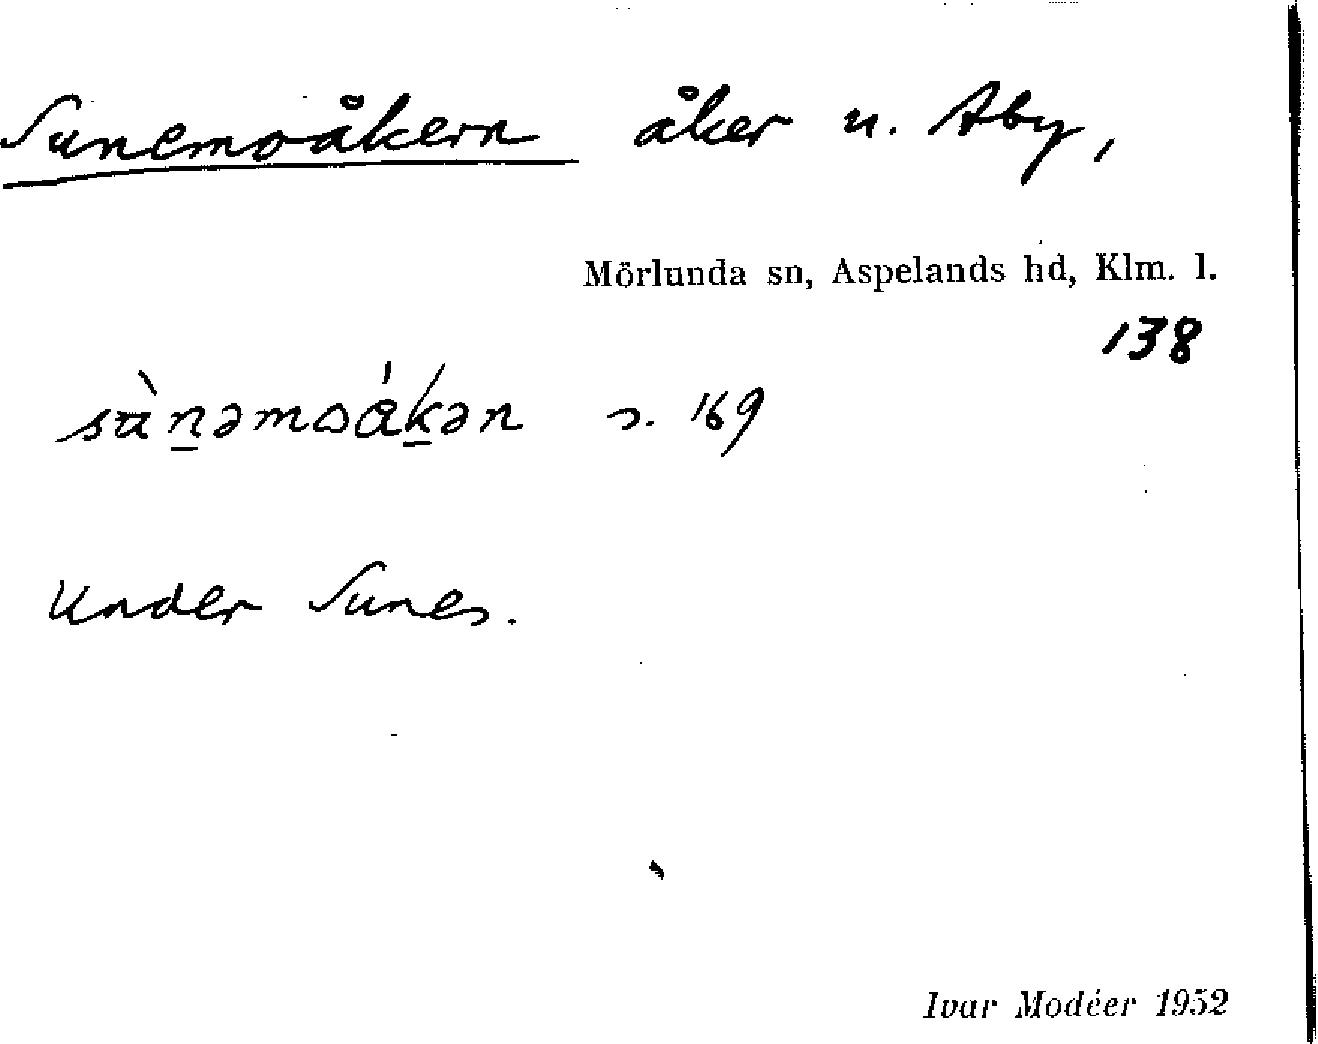 Sunemoåkern åker u. Åby,
Mörlunda sn, Aspelands hd, Klm. l.
138
s. 169
Under Sunes.
Ivar Modéer 1952